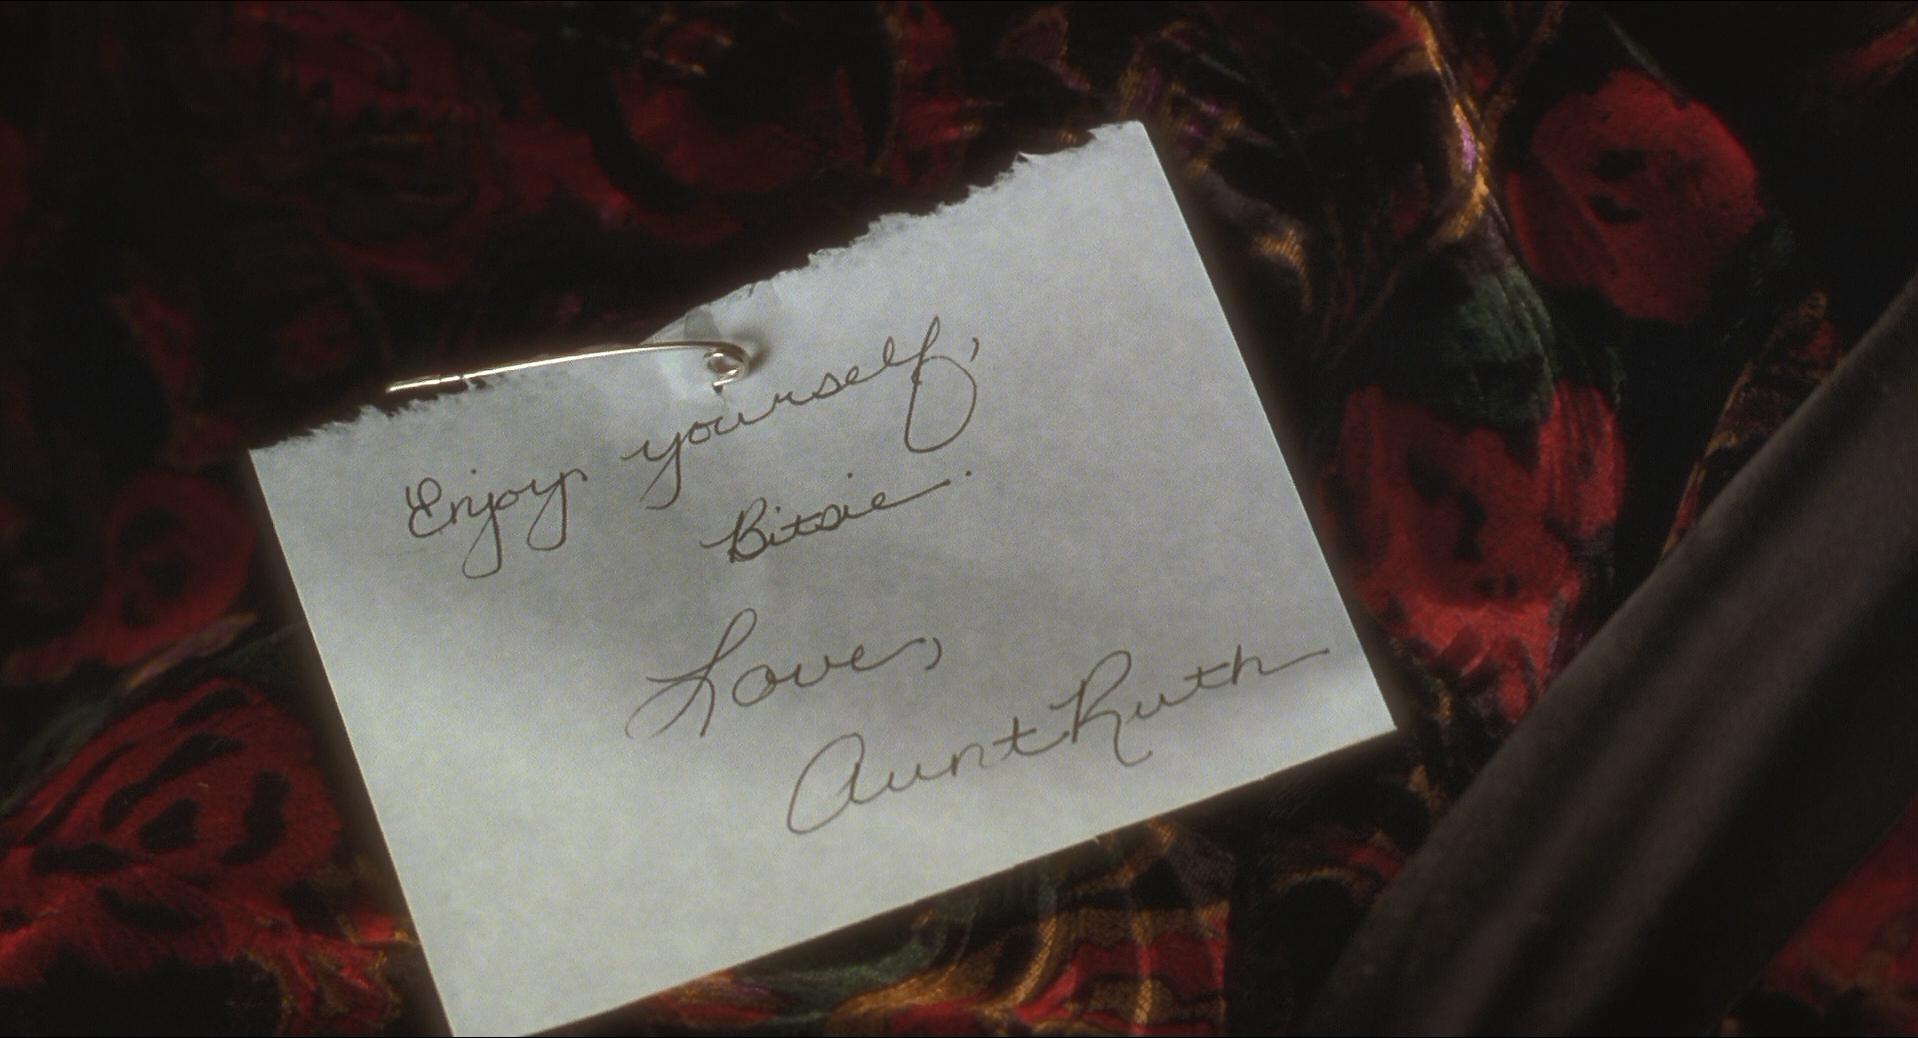 Enjoy yourself,
Bitsie.
Love,
Aunt Ruth